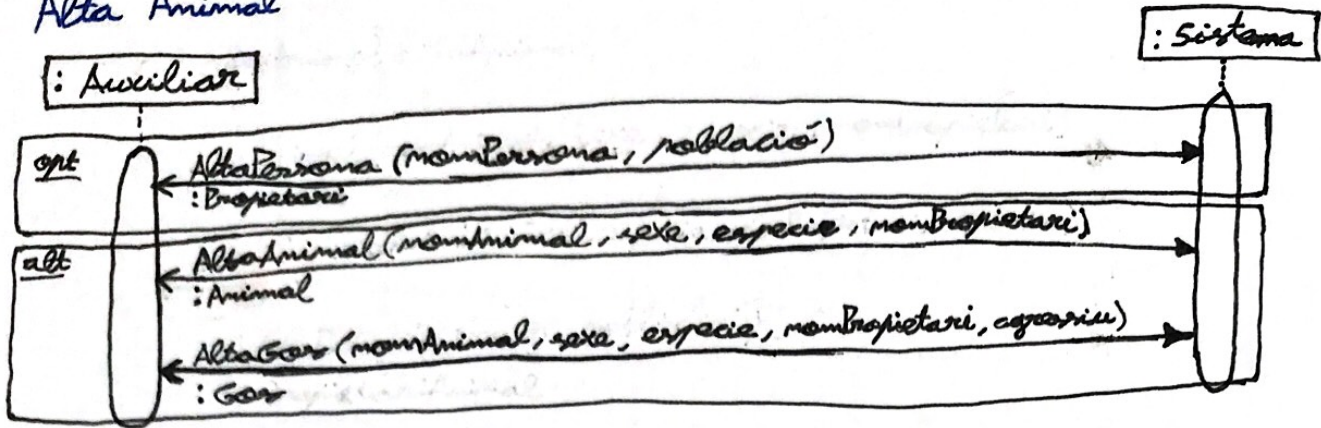 Alta Animal
: Auxiliar
: Sistema
opt
AltaPersona (nomPersona, població)
: Propietari
alt
AltaAnimal (nomAnimal, sexe, especie, nomPropietari)
: Animal
AltaGos (nomAnimal, sexe, especie, nomPropietari, agressiu)
: Gos